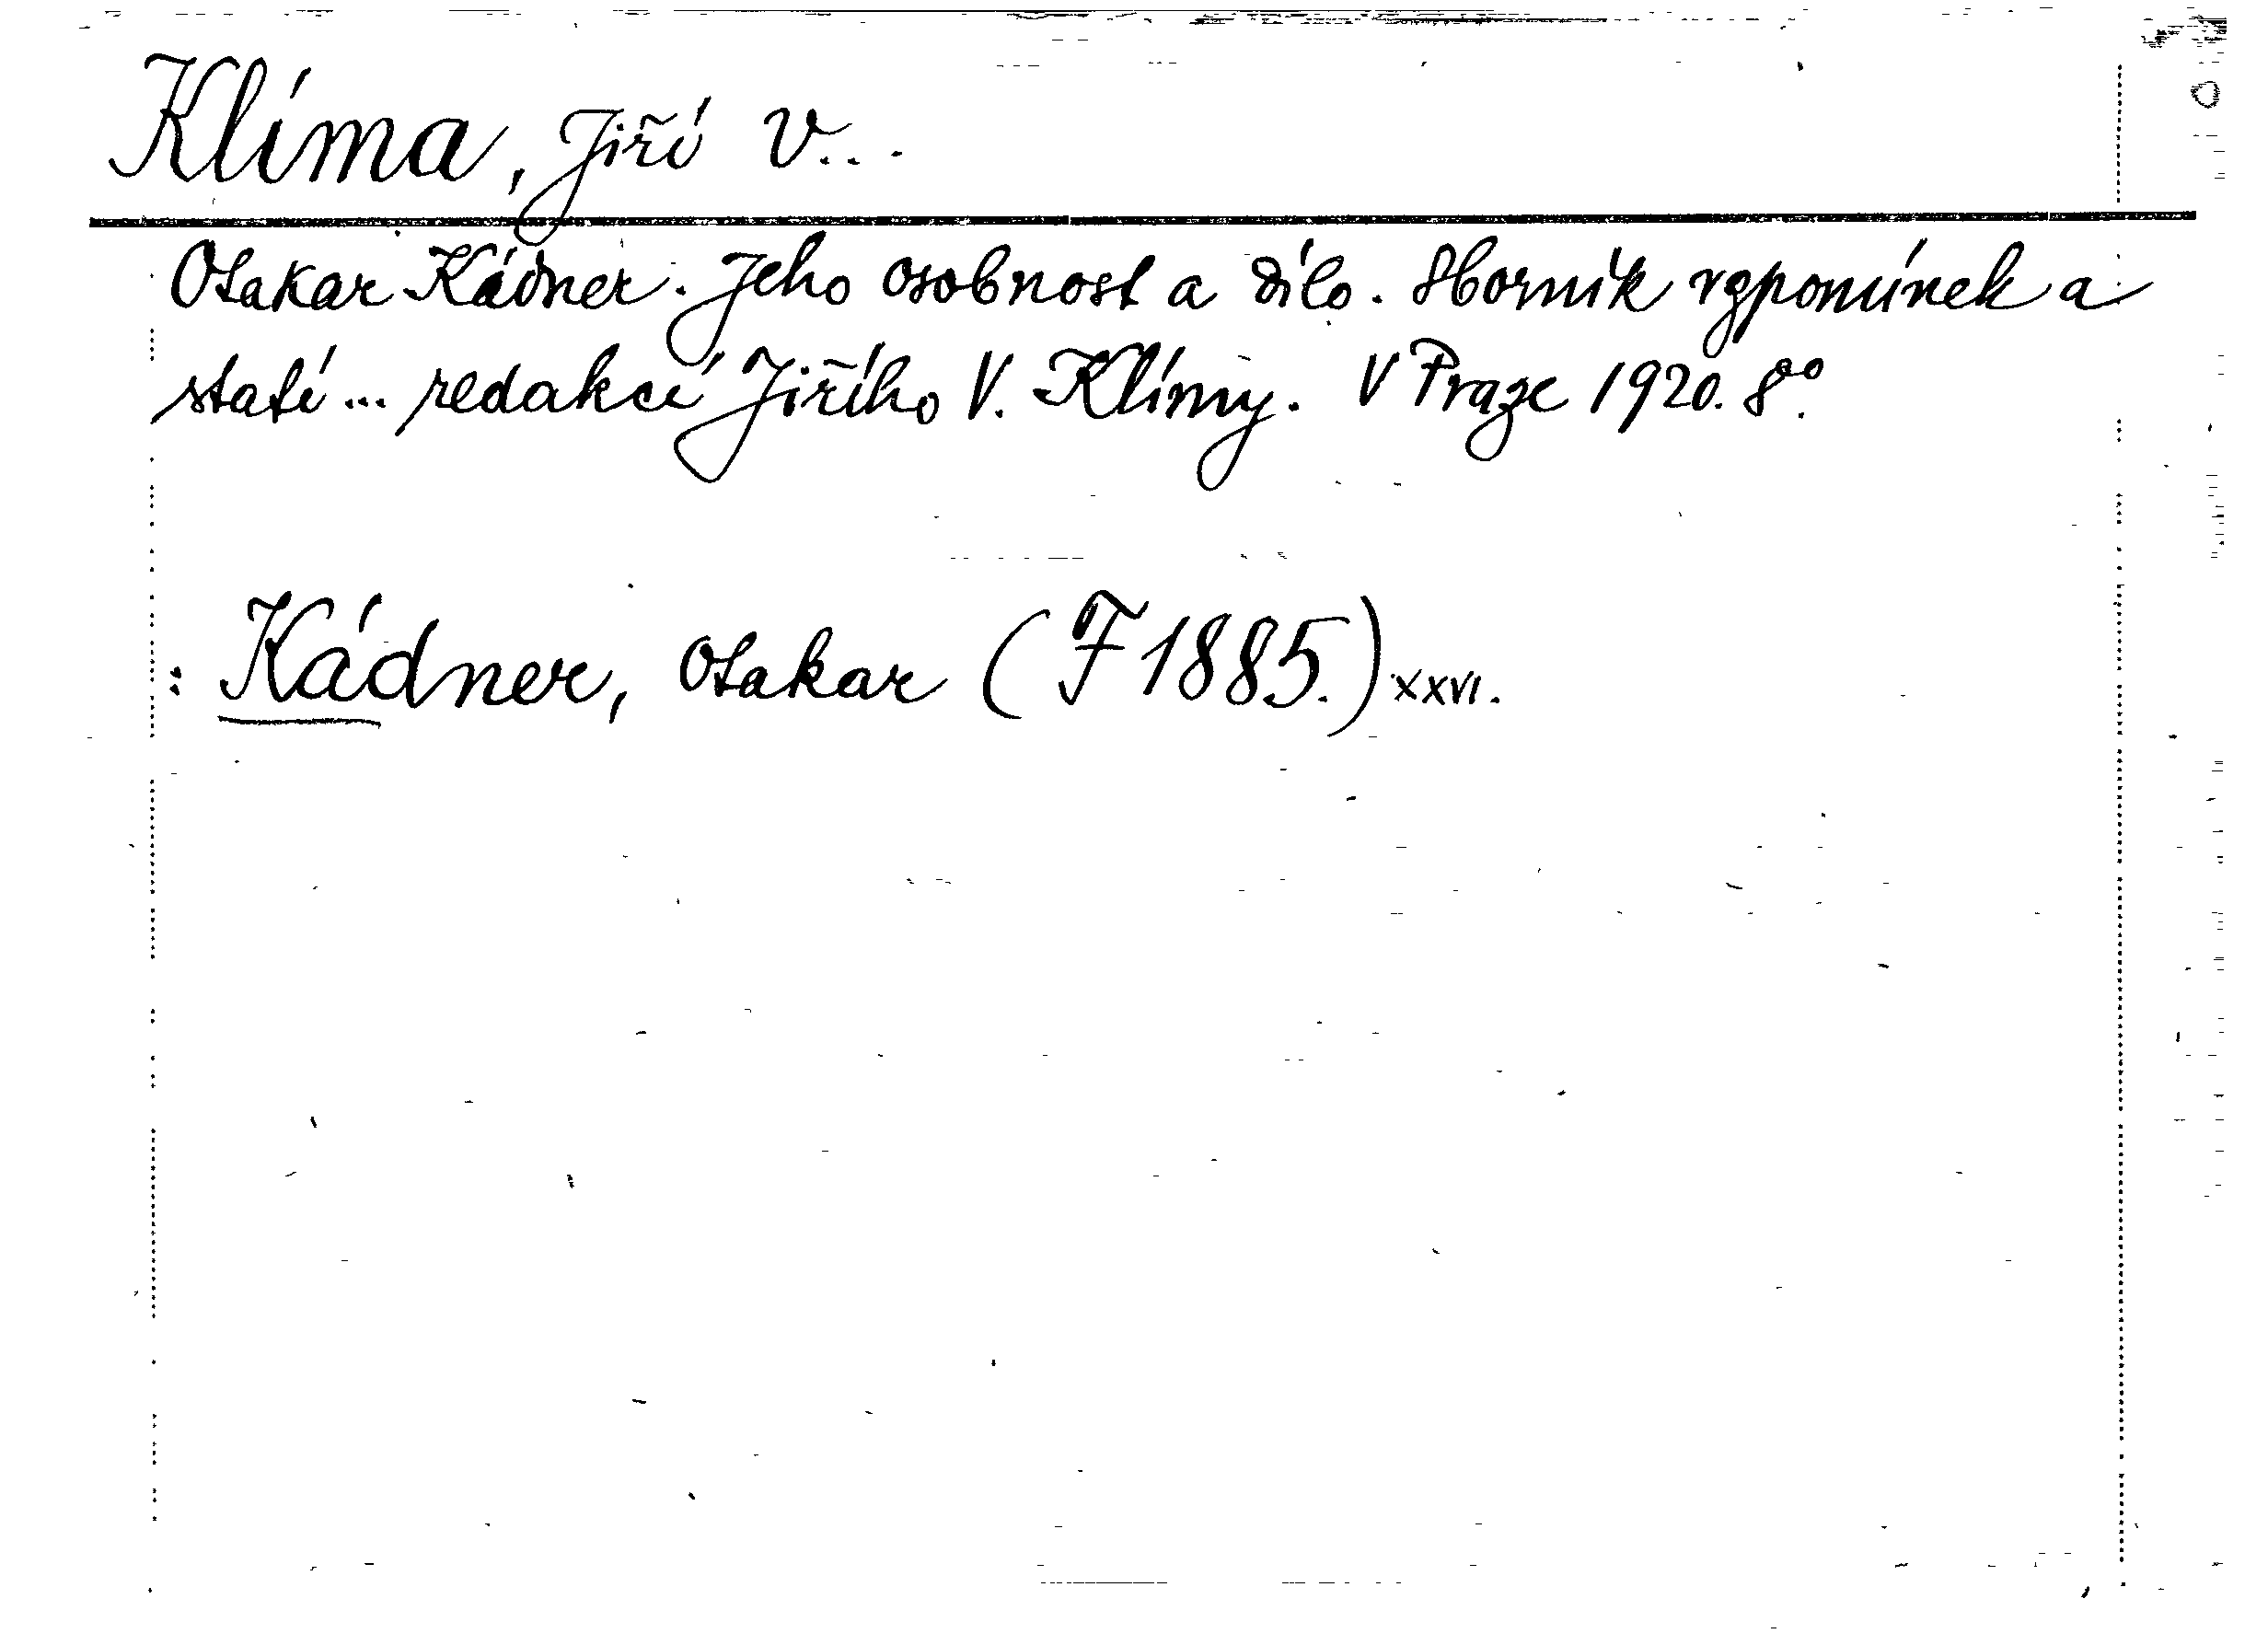 Klíma, Jiří V...
Otakar Kádner. Jeho osobnost a dílo. Sborník vzpomínek a
statí ... redakcí Jiřího V. Klímy. V Praze 1920. 8°°.
: Kádner, Otakar (F 1885.) XXVI.